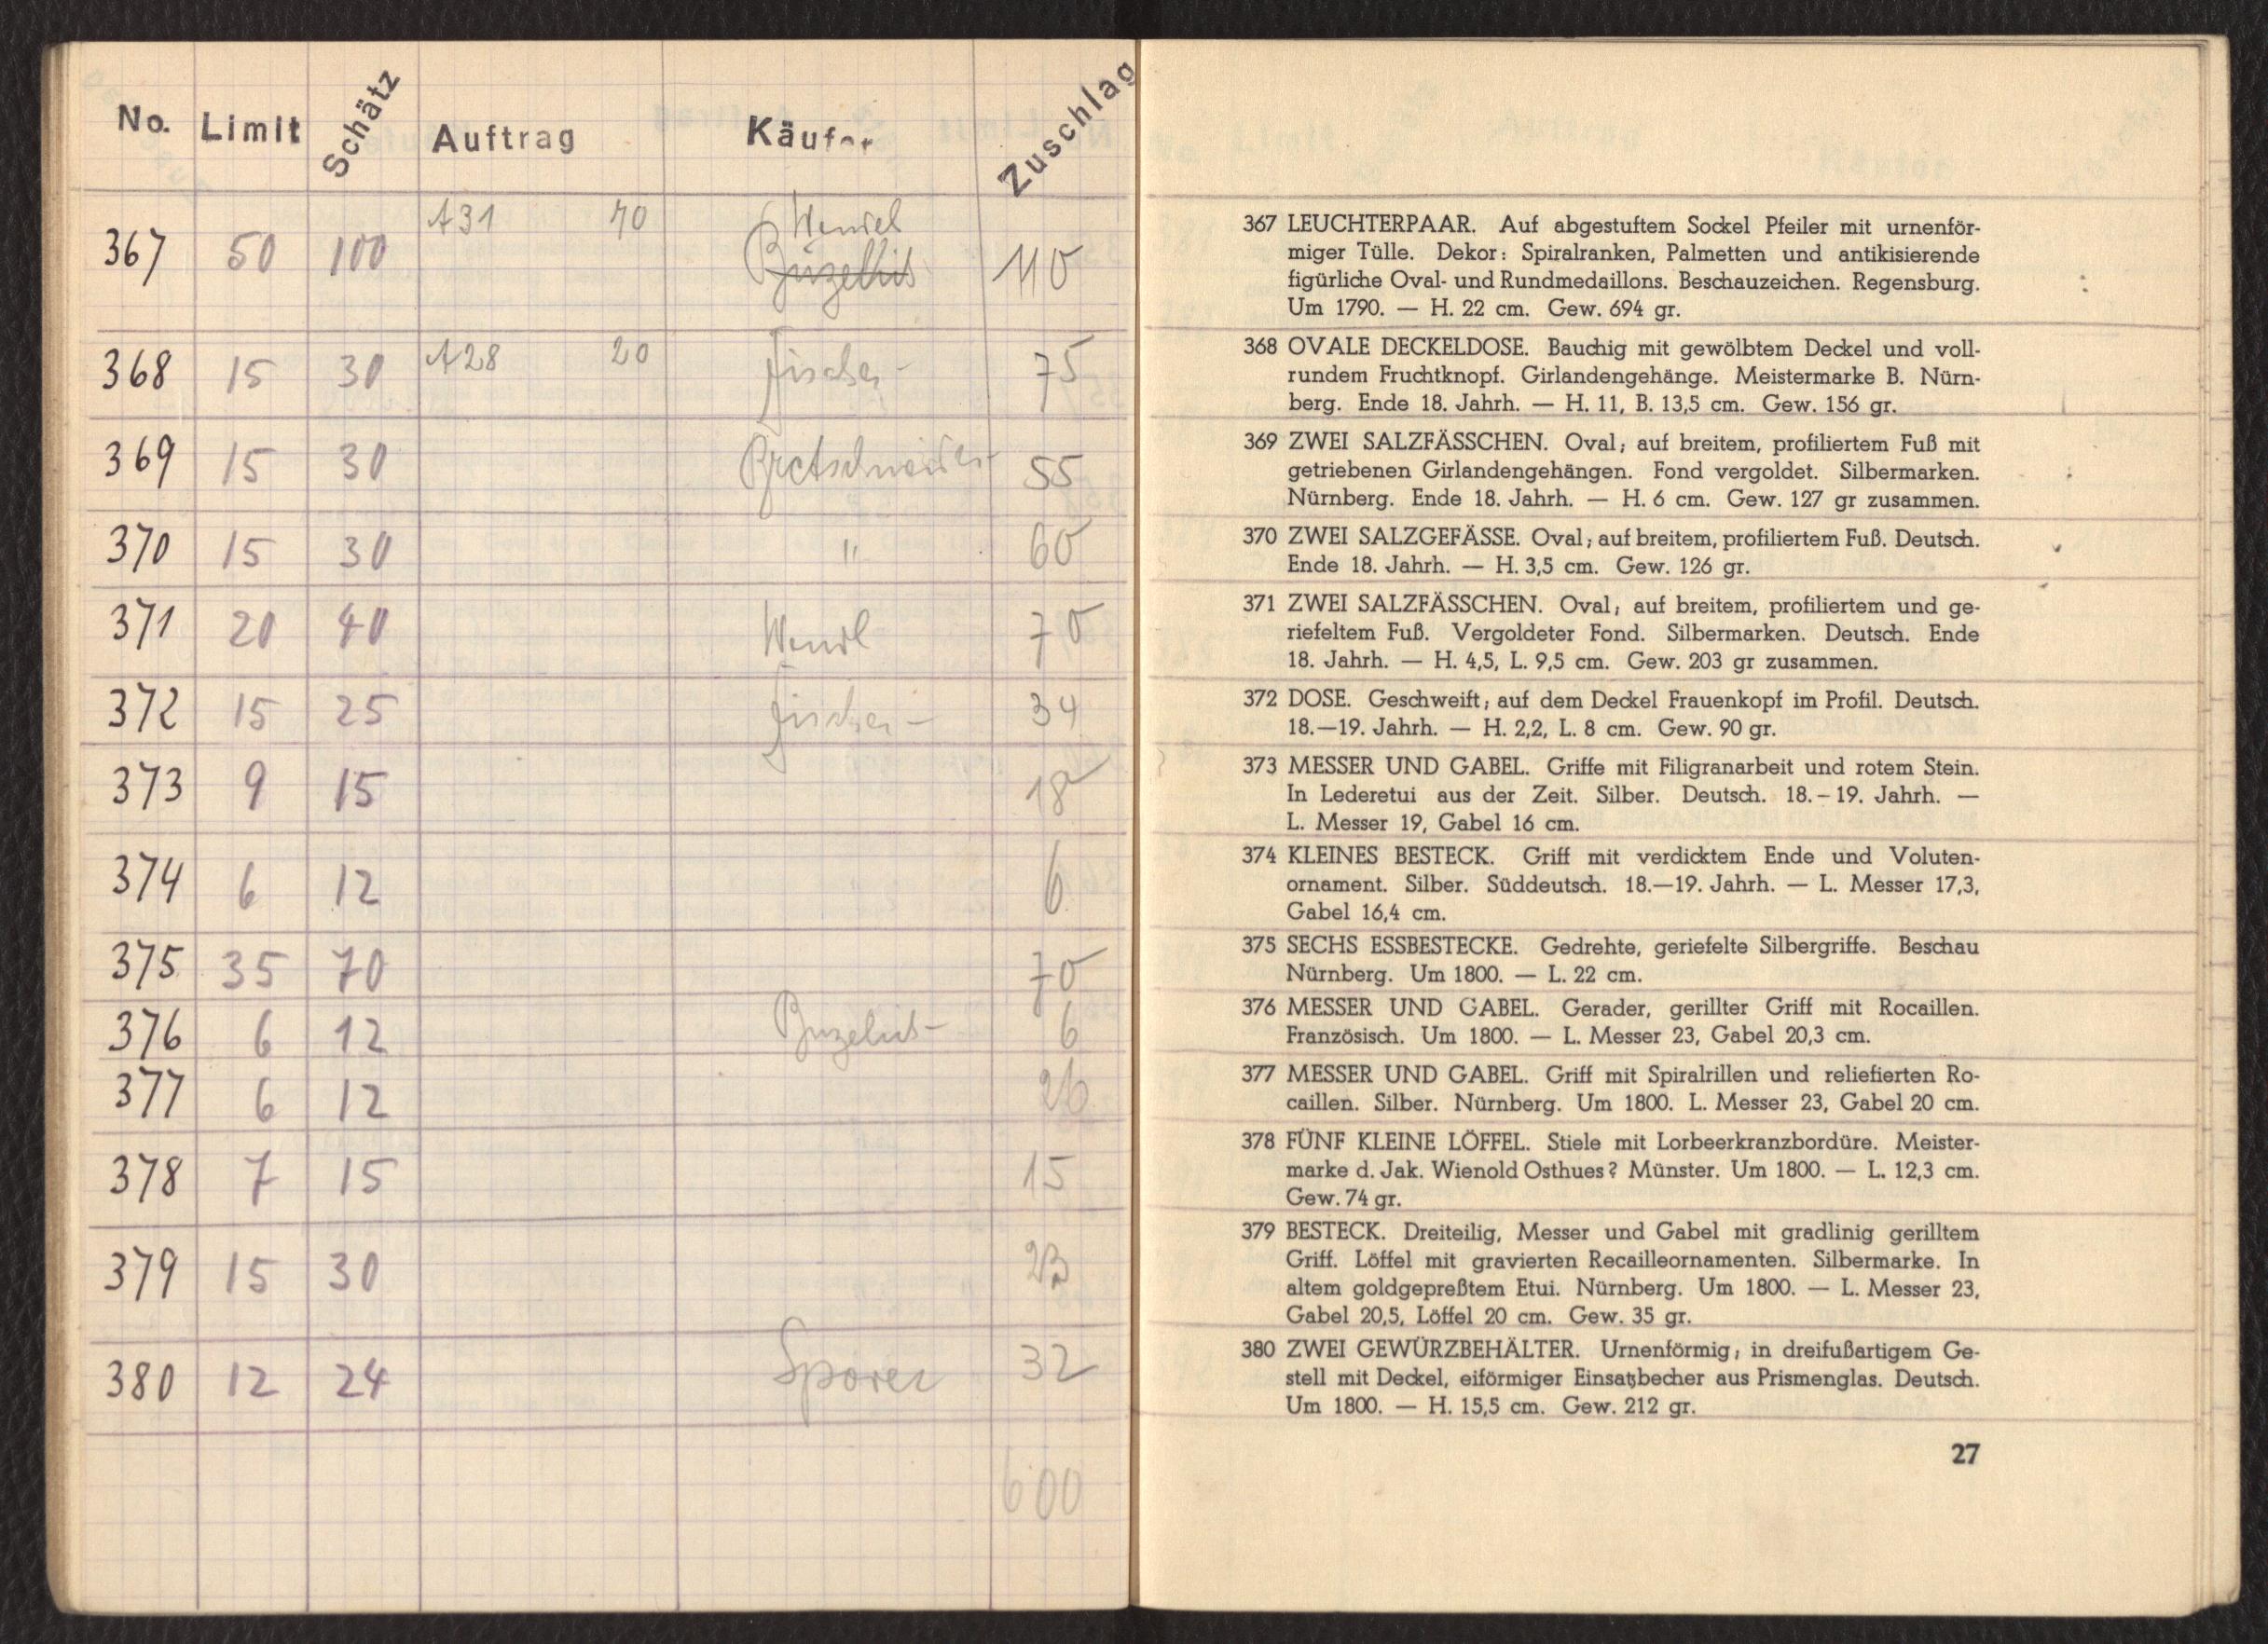 No. Limit Schätz Auftrag Käufer Zuschlag
367 50 100 A31 70 Wendel 110
368 15 30 A28 20 Fischer - 75
369 15 30 Bretschneider - 55
370 15 30 " 60
371 20 40 Wendl 70
372 15 25 Fischer - 34
373 9 15 18
374 6 12 6
375 35 70 70
376 6 12 6
377 6 12 26
378 7 15 15
379 15 30 23
380 12 24 Sporer 32
600
367 LEUCHTERPAAR. Auf abgestuftem Sockel Pfeiler mit urnenför-
miger Tülle. Dekor: Spiralranken, Palmetten und antikisierende
figürliche Oval- und Rundmedaillons. Beschauzeichen. Regensburg.
Um 1790. — H. 22 cm. Gew. 694 gr.
368 OVALE DECKELDOSE. Bauchig mit gewölbtem Deckel und voll-
rundem Fruchtknopf. Girlandengehänge. Meistermarke B. Nürn-
berg. Ende 18. Jahrh. — H. 11, B. 13,5 cm. Gew. 156 gr.
369 ZWEI SALZFÄSSCHEN. Oval; auf breitem, profiliertem Fuß mit
getriebenen Girlandengehängen. Fond vergoldet. Silbermarken.
Nürnberg. Ende 18. Jahrh. — H. 6 cm. Gew. 127 gr zusammen.
370 ZWEI SALZGEFÄSSE. Oval; auf breitem, profiliertem Fuß. Deutsch.
Ende 18. Jahrh. — H. 3,5 cm. Gew. 126 gr.
371 ZWEI SALZFÄSSCHEN. Oval; auf breitem, profiliertem und ge-
riefeltem Fuß. Vergoldeter Fond. Silbermarken. Deutsch. Ende
18. Jahrh. — H. 4,5, L. 9,5 cm. Gew. 203 gr zusammen.
372 DOSE. Geschweift; auf dem Deckel Frauenkopf im Profil. Deutsch.
18.—19. Jahrh. — H. 2,2, L. 8 cm. Gew. 90 gr.
373 MESSER UND GABEL. Griffe mit Filigranarbeit und rotem Stein.
In Lederetui aus der Zeit. Silber. Deutsch. 18.–19. Jahrh. —
L. Messer 19, Gabel 16 cm.
374 KLEINES BESTECK. Griff mit verdicktem Ende und Voluten-
ornament. Silber. Süddeutsch. 18.—19. Jahrh. — L. Messer 17,3,
Gabel 16,4 cm.
375 SECHS ESSBESTECKE. Gedrehte, geriefelte Silbergriffe. Beschau
Nürnberg. Um 1800. — L. 22 cm.
376 MESSER UND GABEL. Gerader, gerillter Griff mit Rocaillen.
Französisch. Um 1800. — L. Messer 23, Gabel 20,3 cm.
377 MESSER UND GABEL. Griff mit Spiralrillen und reliefierten Ro-
caillen. Silber. Nürnberg. Um 1800. L. Messer 23, Gabel 20 cm.
378 FÜNF KLEINE LÖFFEL. Stiele mit Lorbeerkranzbordüre. Meister-
marke d. Jak. Wienold Osthues? Münster. Um 1800. — L. 12,3 cm.
Gew. 74 gr.
379 BESTECK. Dreiteilig, Messer und Gabel mit gradlinig gerilltem
Griff. Löffel mit gravierten Recailleornamenten. Silbermarke. In
altem goldgepreßtem Etui. Nürnberg. Um 1800. — L. Messer 23,
Gabel 20,5, Löffel 20 cm. Gew. 35 gr.
380 ZWEI GEWÜRZBEHÄLTER. Urnenförmig; in dreifußartigem Ge-
stell mit Deckel, eiförmiger Einsatzbecher aus Prismenglas. Deutsch.
Um 1800. — H. 15,5 cm. Gew. 212 gr.
27